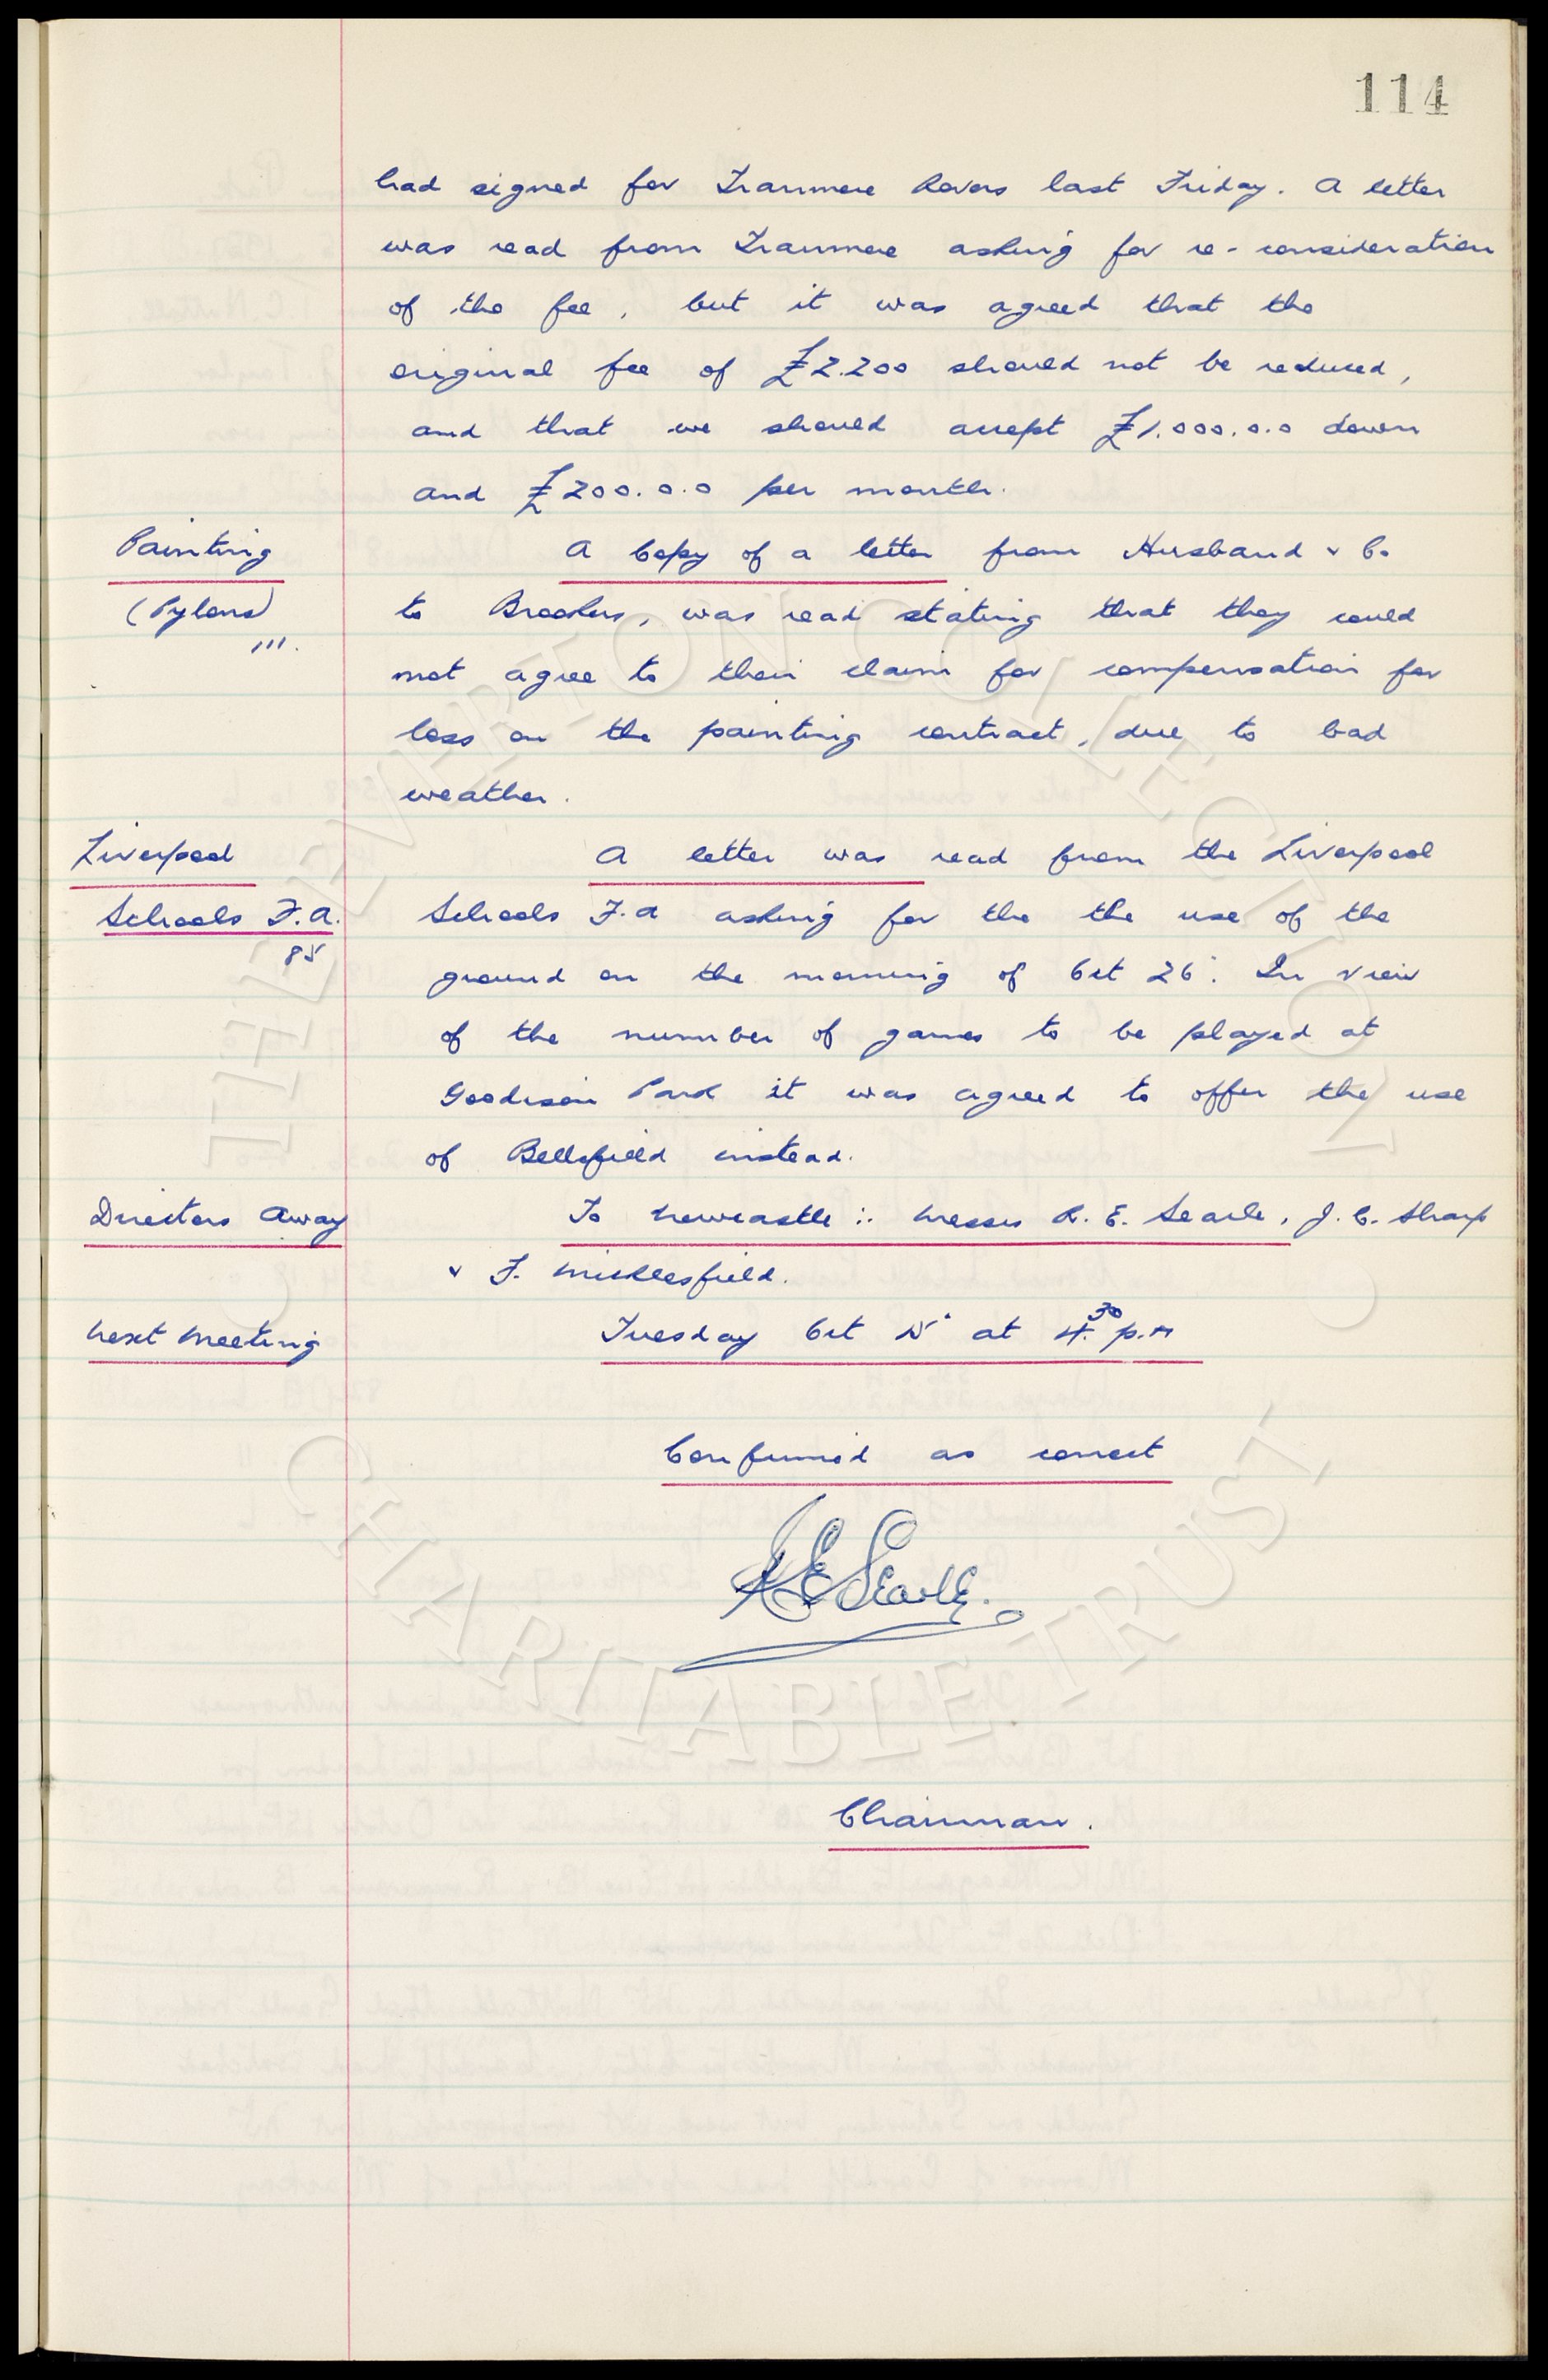 114
had signed for Tranmere Rovers last Friday. A letter
was read from Tranmere asking for re-consideration
of the fee, but it was agreed that the
original fee of £2.200 should not be reduced,
and that we should accept £1.000.0.0 down
and £200.0.0 per month.
Painting
A Copy of a letter from Husband & Co
(Pylons)
to Brookers, was read stating that they could
111.
not agree to their claim for compensation for
loss on the painting contract, due to bad
weather.
Liverpool
A letter was read from the Liverpool
Schools F.A.
Schools F.A asking for the the use of the
85
ground on the morning of Oct 26". In view
of the number of games to be played at
Goodison Park it was agreed to offer the use
of Bellefield instead.
Directors Away
To Newcastle :. Messrs R. E. Searle, J. C. Sharp
& F. Micklesfield.
Next Meeting
Tuesday Oct 15" at 4.30 p.m
Confirmed as correct
R E Searle.
Chairman.
THE EVERTON COLLECTION
CHARITABLE TRUST